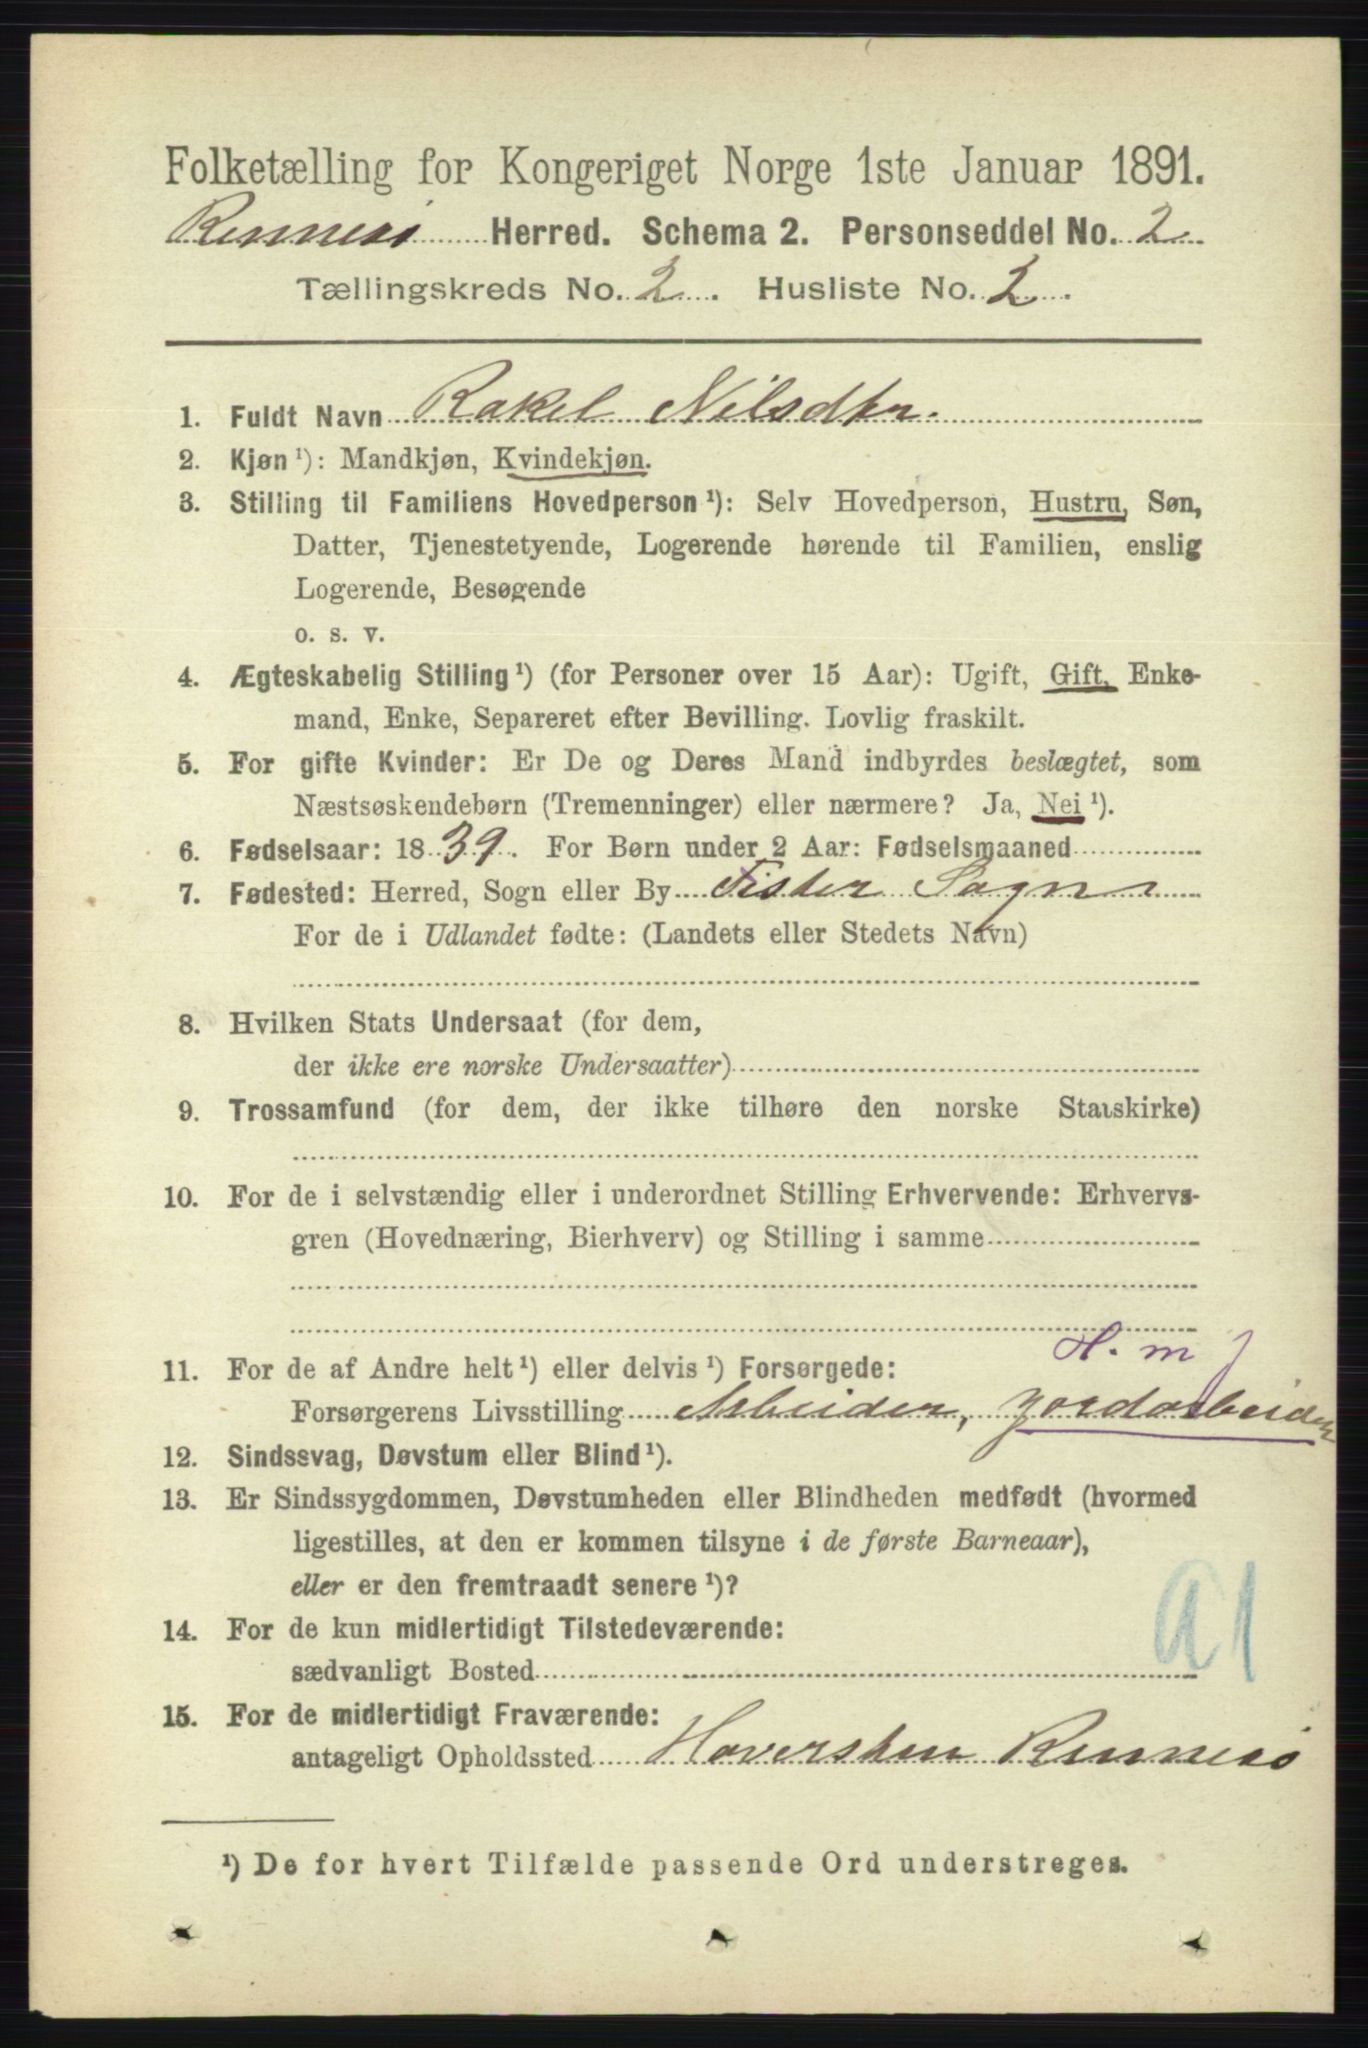 Folketælling for Kongeriget Norge 1ste Januar 1891.
Rennesø Herred. Schema 2. Personseddel No. 2
Tællingskreds No. 2. Husliste No. 2.
1. Fuldt Navn Rakel Nilsdtr.
2. Kjøn ¹): Mandkjøn, Kvindekjøn.
3. Stilling til Familiens Hovedperson ¹): Selv Hovedperson, Hustru, Søn,
Datter, Tjenestetyende, Logerende hørende til Familien, enslig
Logerende, Besøgende
o. s. v.
4. Ægteskabelig Stilling ¹) (for Personer over 15 Aar): Ugift, Gift, Enke-
mand, Enke, Separeret efter Bevilling. Lovlig fraskilt.
5. For gifte Kvinder: Er De og Deres Mand indbyrdes beslægtet, som
Næstsøskendebørn (Tremenninger) eller nærmere? Ja, Nei ¹).
6. Fødselsaar: 1839. For Børn under 2 Aar: Fødselsmaaned
7. Fødested: Herred, Sogn eller By Fister Sogn
For de i Udlandet fødte: (Landets eller Stedets Navn)
8. Hvilken Stats Undersaat (for dem,
der ikke ere norske Undersaatter)
9. Trossamfund (for dem, der ikke tilhøre den norske Statskirke)
10. For de i selvstændig eller i underordnet Stilling Erhvervende: Erhvervs-
gren (Hovednæring, Bierhverv) og Stilling i samme
H. m j
11. For de af Andre helt ¹) eller delvis ¹) Forsørgede:
Forsørgerens Livsstilling Arbeider, jordarbeider
12. Sindssvag, Døvstum eller Blind ¹).
13. Er Sindssygdommen, Døvstumheden eller Blindheden medfødt (hvormed
ligestilles, at den er kommen tilsyne i de første Barneaar),
eller er den fremtraadt senere ¹)?
a1
14. For de kun midlertidigt Tilstedeværende:
sædvanligt Bosted
15. For de midlertidigt Fraværende:
antageligt Opholdssted Haversten Rennesø
¹) De for hvert Tilfælde passende Ord understreges.